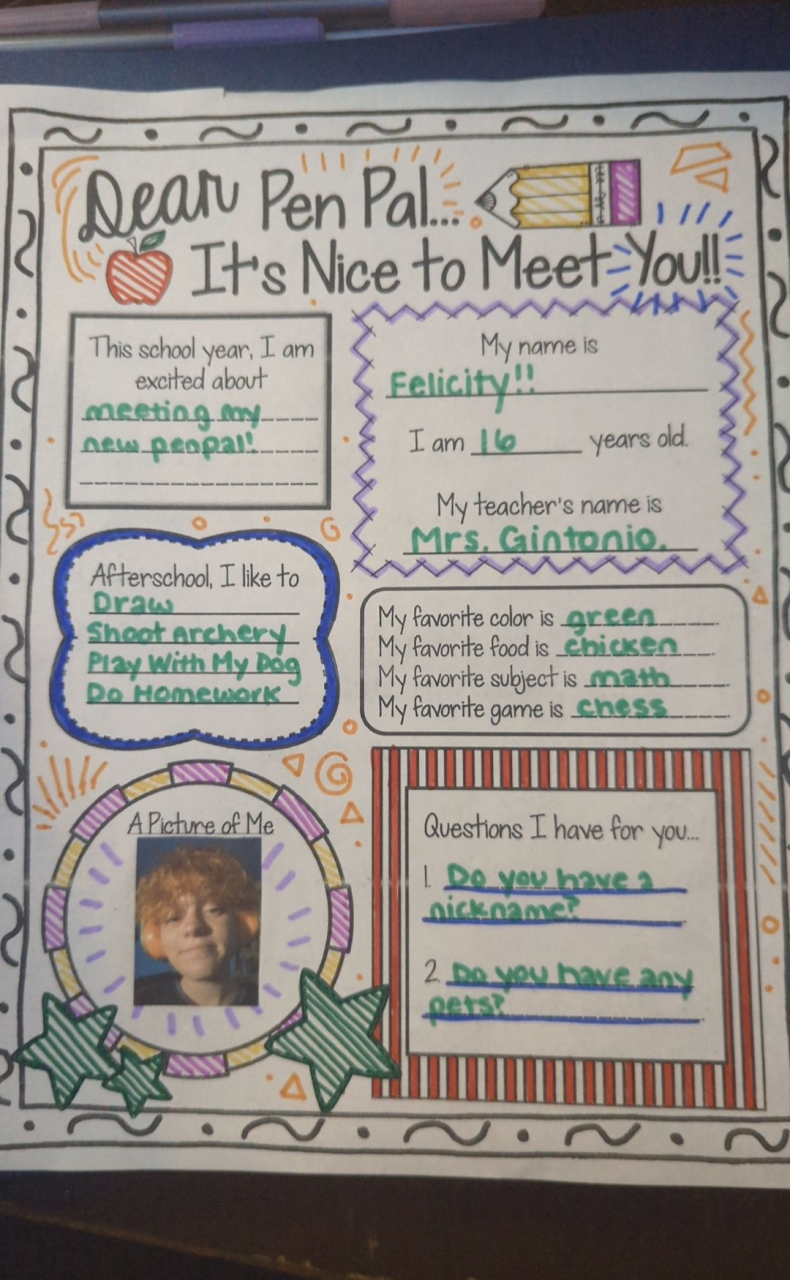 Dear Pen Pal...
It's Nice to Meet You!!
This school year, I am
excited about
meeting my
new penpal!
My name is
Felicity!!
I am 16 years old.
My teacher's name is
Mrs. Gintonio.
Afterschool, I like to
Draw
Shoot Archery
Play With My Dog
Do Homework
My favorite color is green
My favorite food is chicken
My favorite subject is math
My favorite game is chess
A Picture of Me
Questions I have for you...
1. Do you have a
nickname?
2. Do you have any
pets?